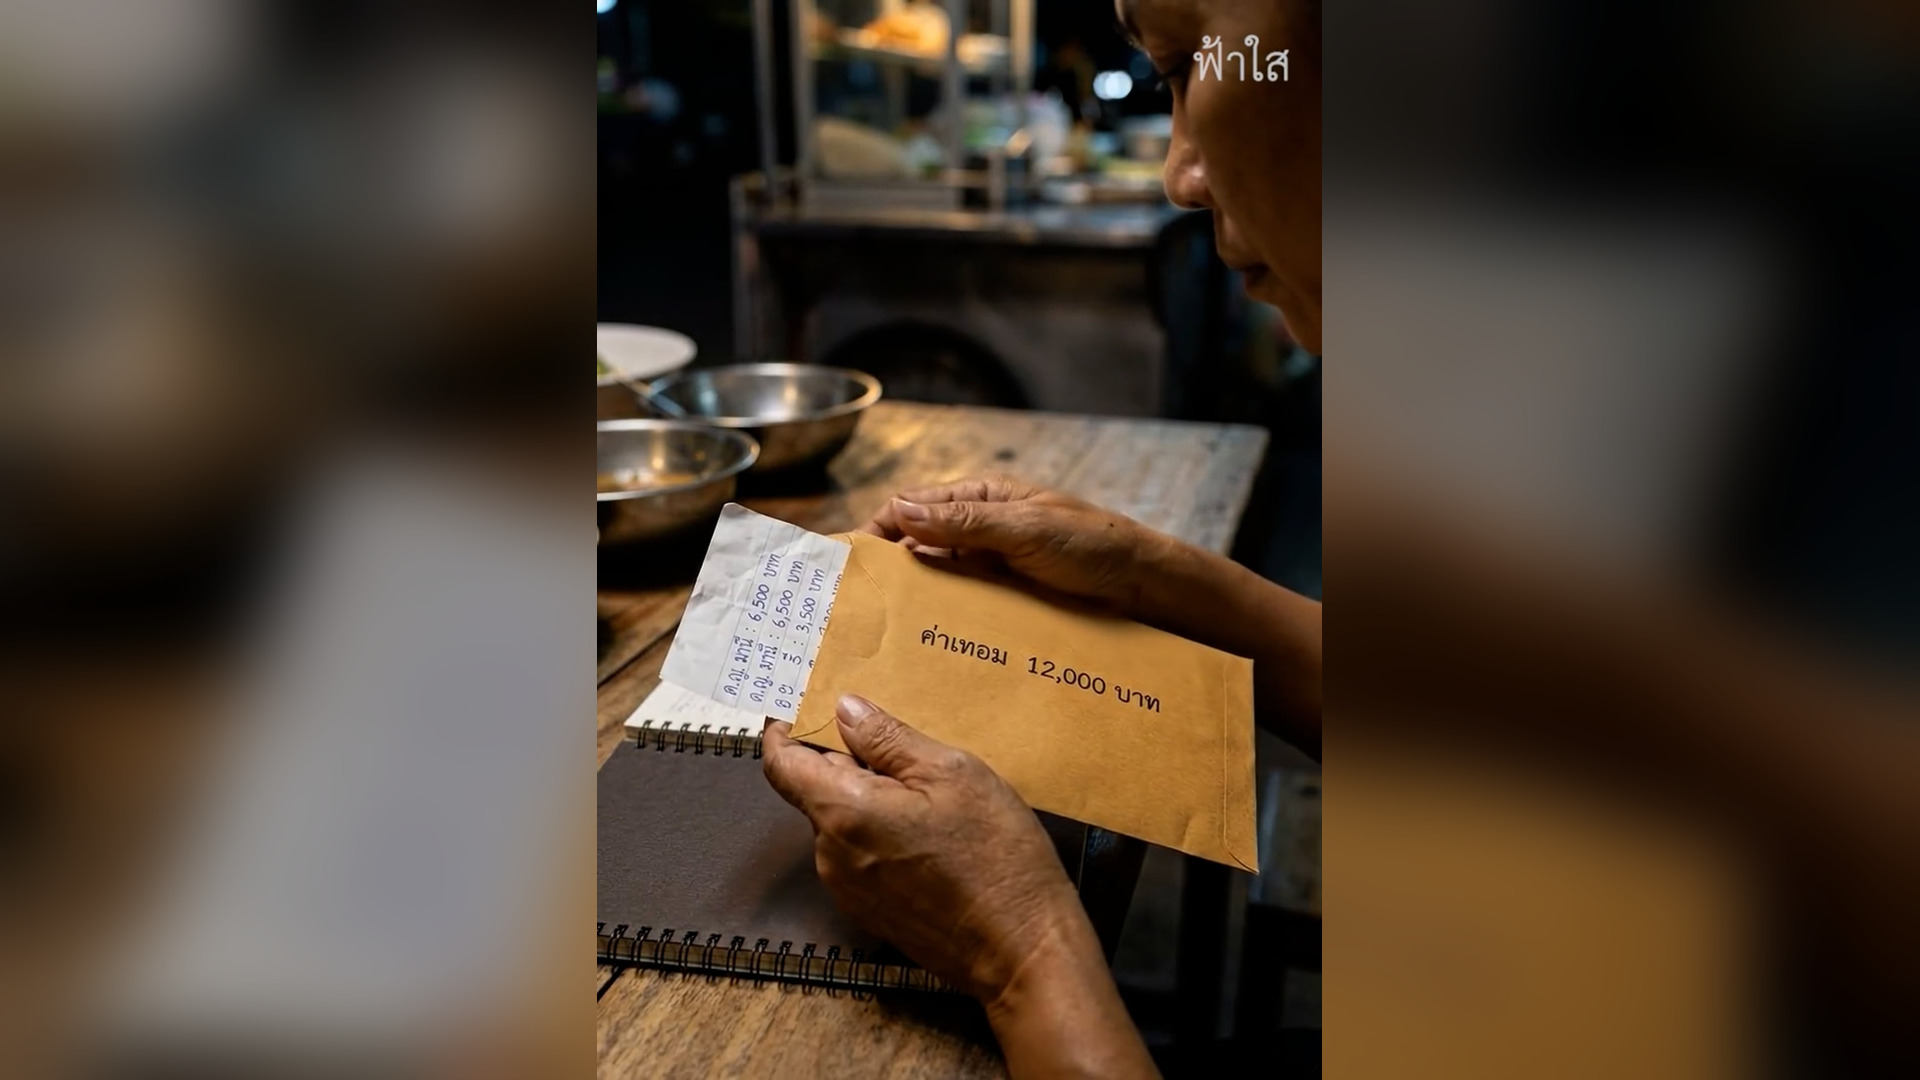 ฟ้าใส
ด.ญ. มานี : 6,500 บาท
ด.ญ. มานี : 6,500 บาท
: 3,500 บาท
ค่าเทอม 12,000 บาท